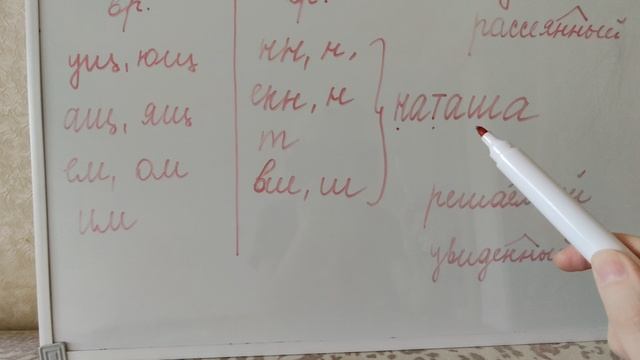 вр.
ущ, ющ
ащ, ящ
ем, ом
им
нн, н,
енн, н
т
вш, ш
наташа
рассеянный
решаемый
увиденный